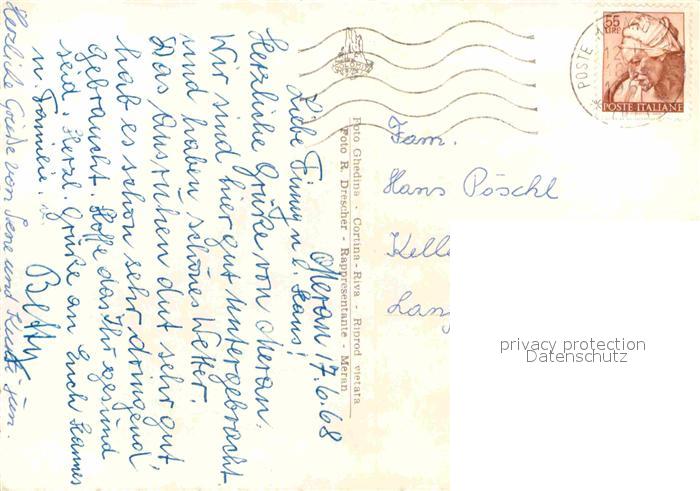 Meran 17.6.68
Liebe Finny u. l. Hans!
Herrliche Grüße von Meran.
Wir sind hier gut untergebracht
und haben schönes Wetter.
Das Ausruhen dut sehr gut,
hab es schon sehr dringend
gebraucht. Hoffe das Ihr gesund
seid. Herzl. Grüße an Euch Hannes
u. Familie.
Betty
Herzliche Grüße von Sene und jun.
Foto Ghedina - Cortina-Riva - Riprod vietata
Foto R. Drescher - Rappresentante - Meran
55
LIRE
POSTE ITALIANE
POSTE
Fam.
Hans Pöschl
Kelle
Lang
privacy protection
Datenschutz